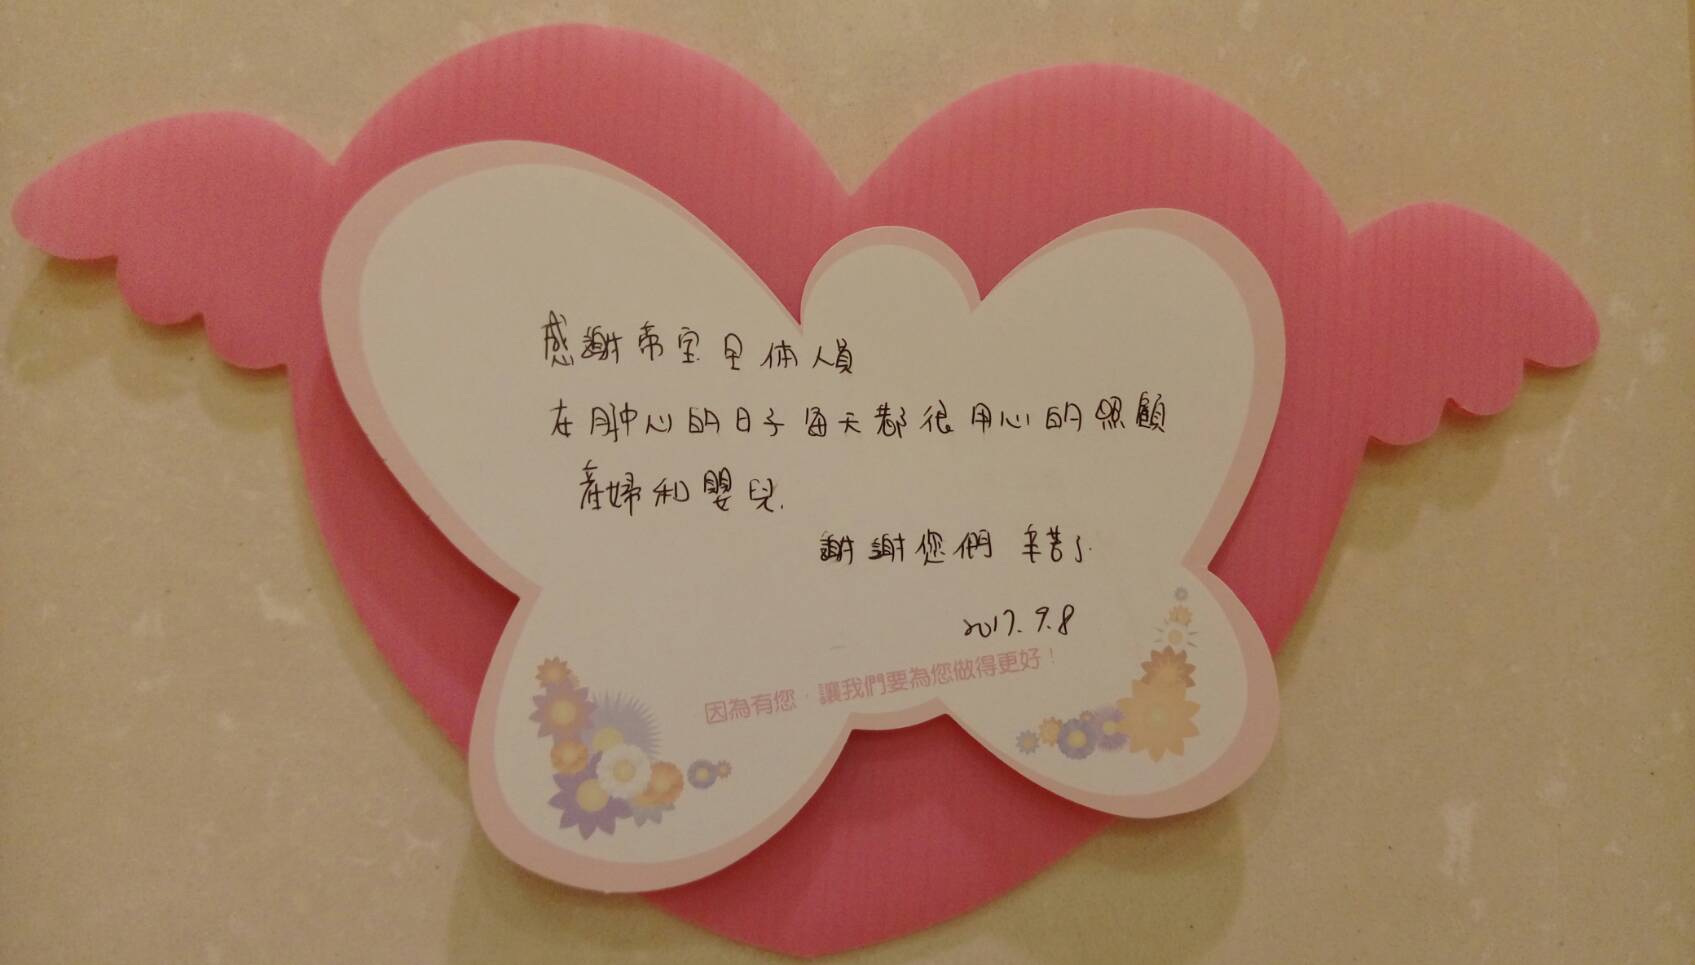 感謝帝宝全体人員
在月中心的日子每天都很用心的照顧
產婦和嬰兒.
謝謝您們 辛苦了.
2017.9.8
因為有您，讓我們要為您做得更好！